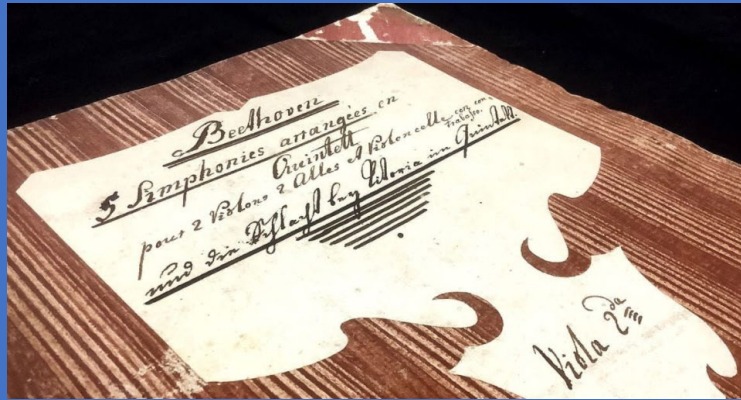 Beethoven
5 Simphonies arrangées en
Quintett
pour 2 Violons 2 Altes et Violoncelle
und die Schlacht bey Vitoria im Quintett.
Viola 2da